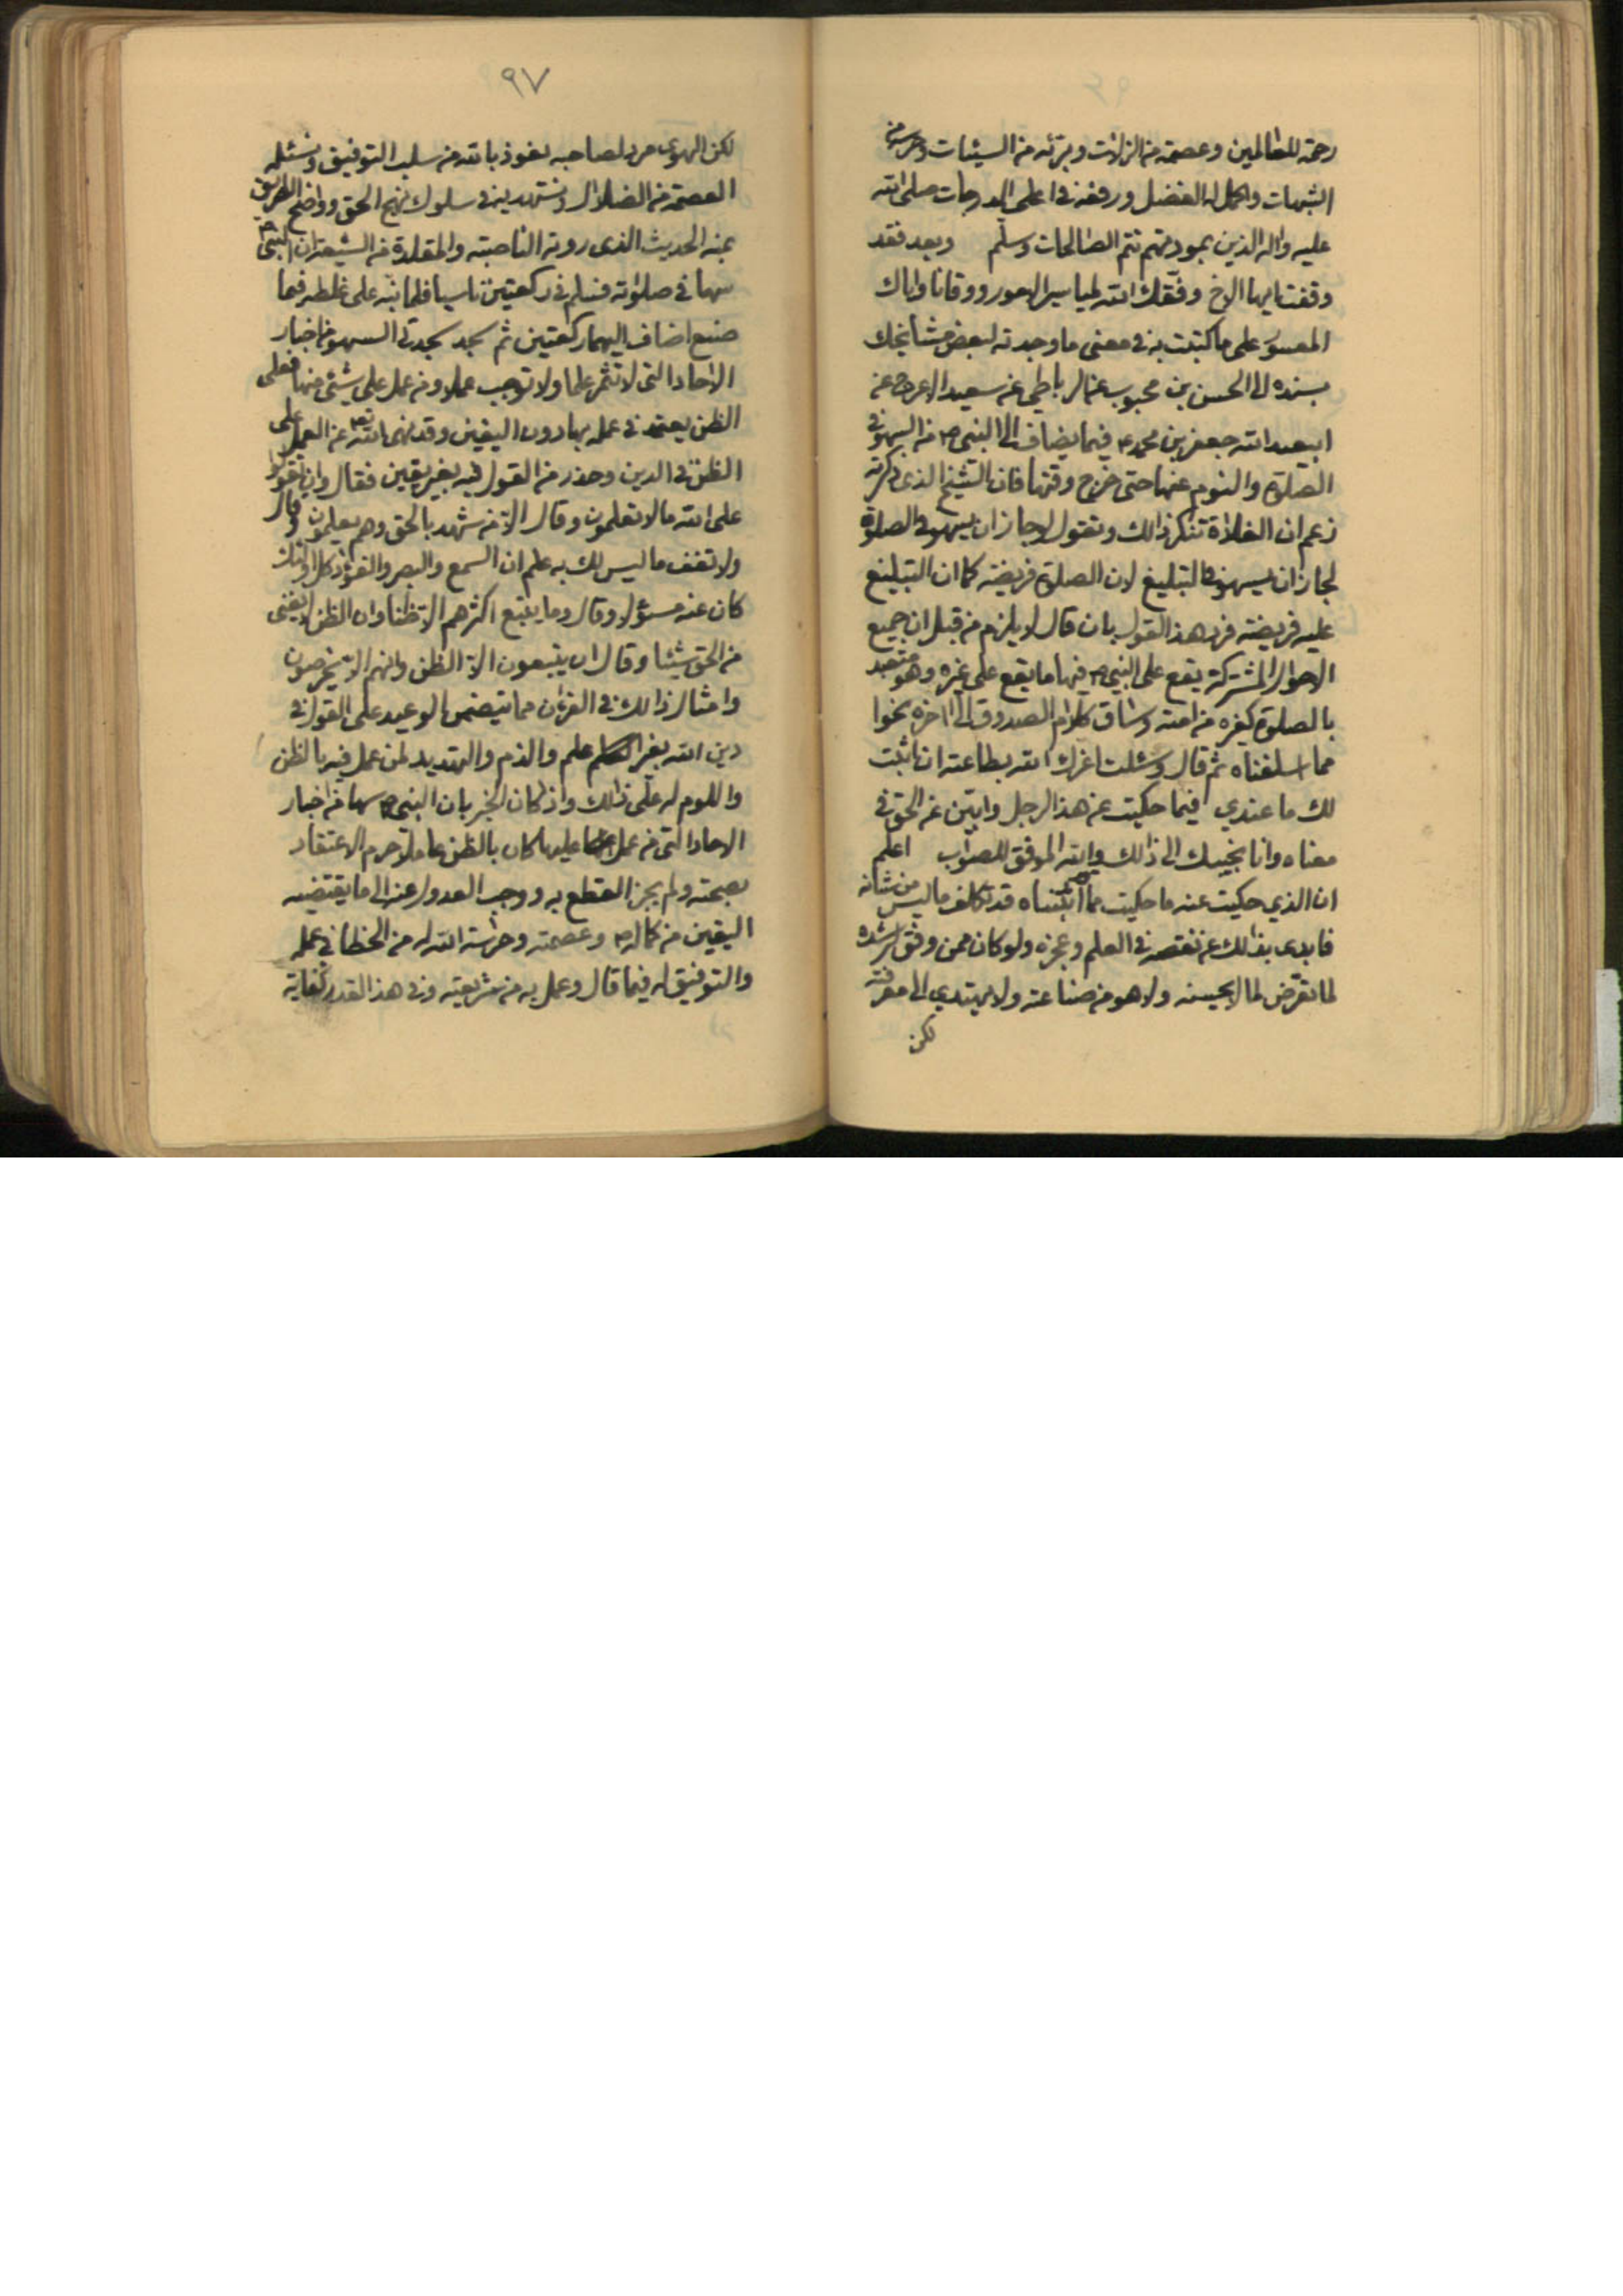 رحمة للعالمين وعصمه من الزلات وبرئه من السيئات وحرسه من
الشبهات واكمل له الفضل ورفعه في اعلى الدرجات صلى الله
عليه واله الذين بمودتهم تتم الصالحات وسلم وبعد فقد
وقفت ايها الاخ وفقك الله لمياسير الامور ووقانا واياك
المعسور على ما كتبت به في معنى ما وجدته لبعض مشايخك
بسنده الى الحسن بن محبوب عن الرباطي عن سعيد الاعرج عن
ابيعبد الله جعفر بن محمد ع فيما يضاف الى النبي ص من السهو في
الصلوة والنوم عنها حتى خرج وقتها فان الشيخ الذي ذكرته
زعم ان الغلاة تنكر ذالك وتقول لو جاز ان يسهو في الصلوة
لجاز ان يسهو في التبليغ لان الصلوة فريضة كما ان التبليغ
عليه فريضة فرد هذ القول بان قال لا يلزم من قبل ان جميع
الاحوال المشتركة يقع على النبي ص فيها ما يقع على غيره وهو متعبد
بالصلوة كغيره من امته وساق كلام الصدوق الى اخره نحوا
مما اسلفناه ثم قال وسئلت اعزك الله بطاعته ان اثبت
لك ما عندي فيما حكيت عن هذ الرجل وابين عن الحق في
معناه وانا مجيبك الى ذالك والله الموفق للصواب اعلم
ان الذي حكيت عنه ما حكيت مما اثبتناه قد تكلف ما ليس من شانه
فابدى بذالك عن نقصه في العلم وعجزه ولو كان ممن وفق لرشده
لما تعرض لما لا يحسنه ولا هو من صناعته ولا يهتدي الى معرفته
لكن
٩٧
لكن الهوى مرد لصاحبه نعوذ بالله من سلب التوفيق ونسئله
العصمة من الضلال ونستهديه في سلوك نهج الحق وواضح الطريق
بمنه الحديث الذي روته الناصبة والمقلدة من الشيعة ان النبي ص
سها في صلوته فسلم في ركعتين ناسيا فلما نبه على غلطه فيما
صنع اضاف اليهما ركعتين ثم سجد سجدتي السهو من اخبار
الاحاد التي لا تثمر علما ولا توجب عملا ومن عمل على شئ منها فعلى
الظن يعتمد في عمله بها دون اليقين وقد نهى الله تع عن العمل على
الظن في الدين وحذر من القول فيه بغير يقين فقال وان تقولوا
على الله ما لا تعلمون وقال الا من شهد بالحق وهم يعلمون وقال
ولا تقف ما ليس لك به علم ان السمع والبصر والفؤاد كل اولئك
كان عنه مسئولا وقال وما يتبع اكثرهم الا ظنا وان الظن لا يغني
من الحق شيئا وقال ان يتبعون الا الظن وانهم الا يخرصون
وامثال ذالك في القران مما يتضمن الوعيد على القول في
دين الله بغير علم والذم والتهديد لمن عمل فيه بالظن
واللوم له على ذلك واذ كان الخبر بان النبي ص سها من اخبار
الاحاد التي من عمل عليها كان بالظن عاملا حرم الاعتقاد
بصحته ولم يجز القطع به ووجب العدول عنه الى ما يقتضيه
اليقين من كماله ص وعصمته وحراسة الله له من الخطا في عمله
والتوفيق له فيما قال وعمل به من شريعته وفي هذ القدر كفاية